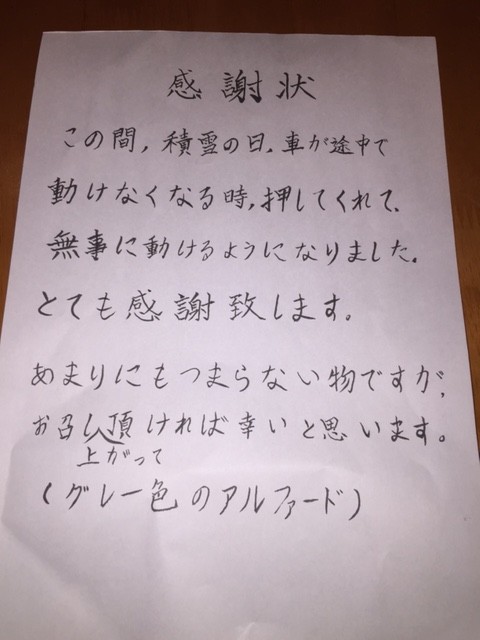 感謝状
この間,積雪の日,車が途中で
動けなくなる時,押してくれて、
無事に動けるようになりました.
とても感謝致します。
あまりにもつまらない物ですが,
お召し頂ければ幸いと思います。
上がって
(グレー色のアルファード)